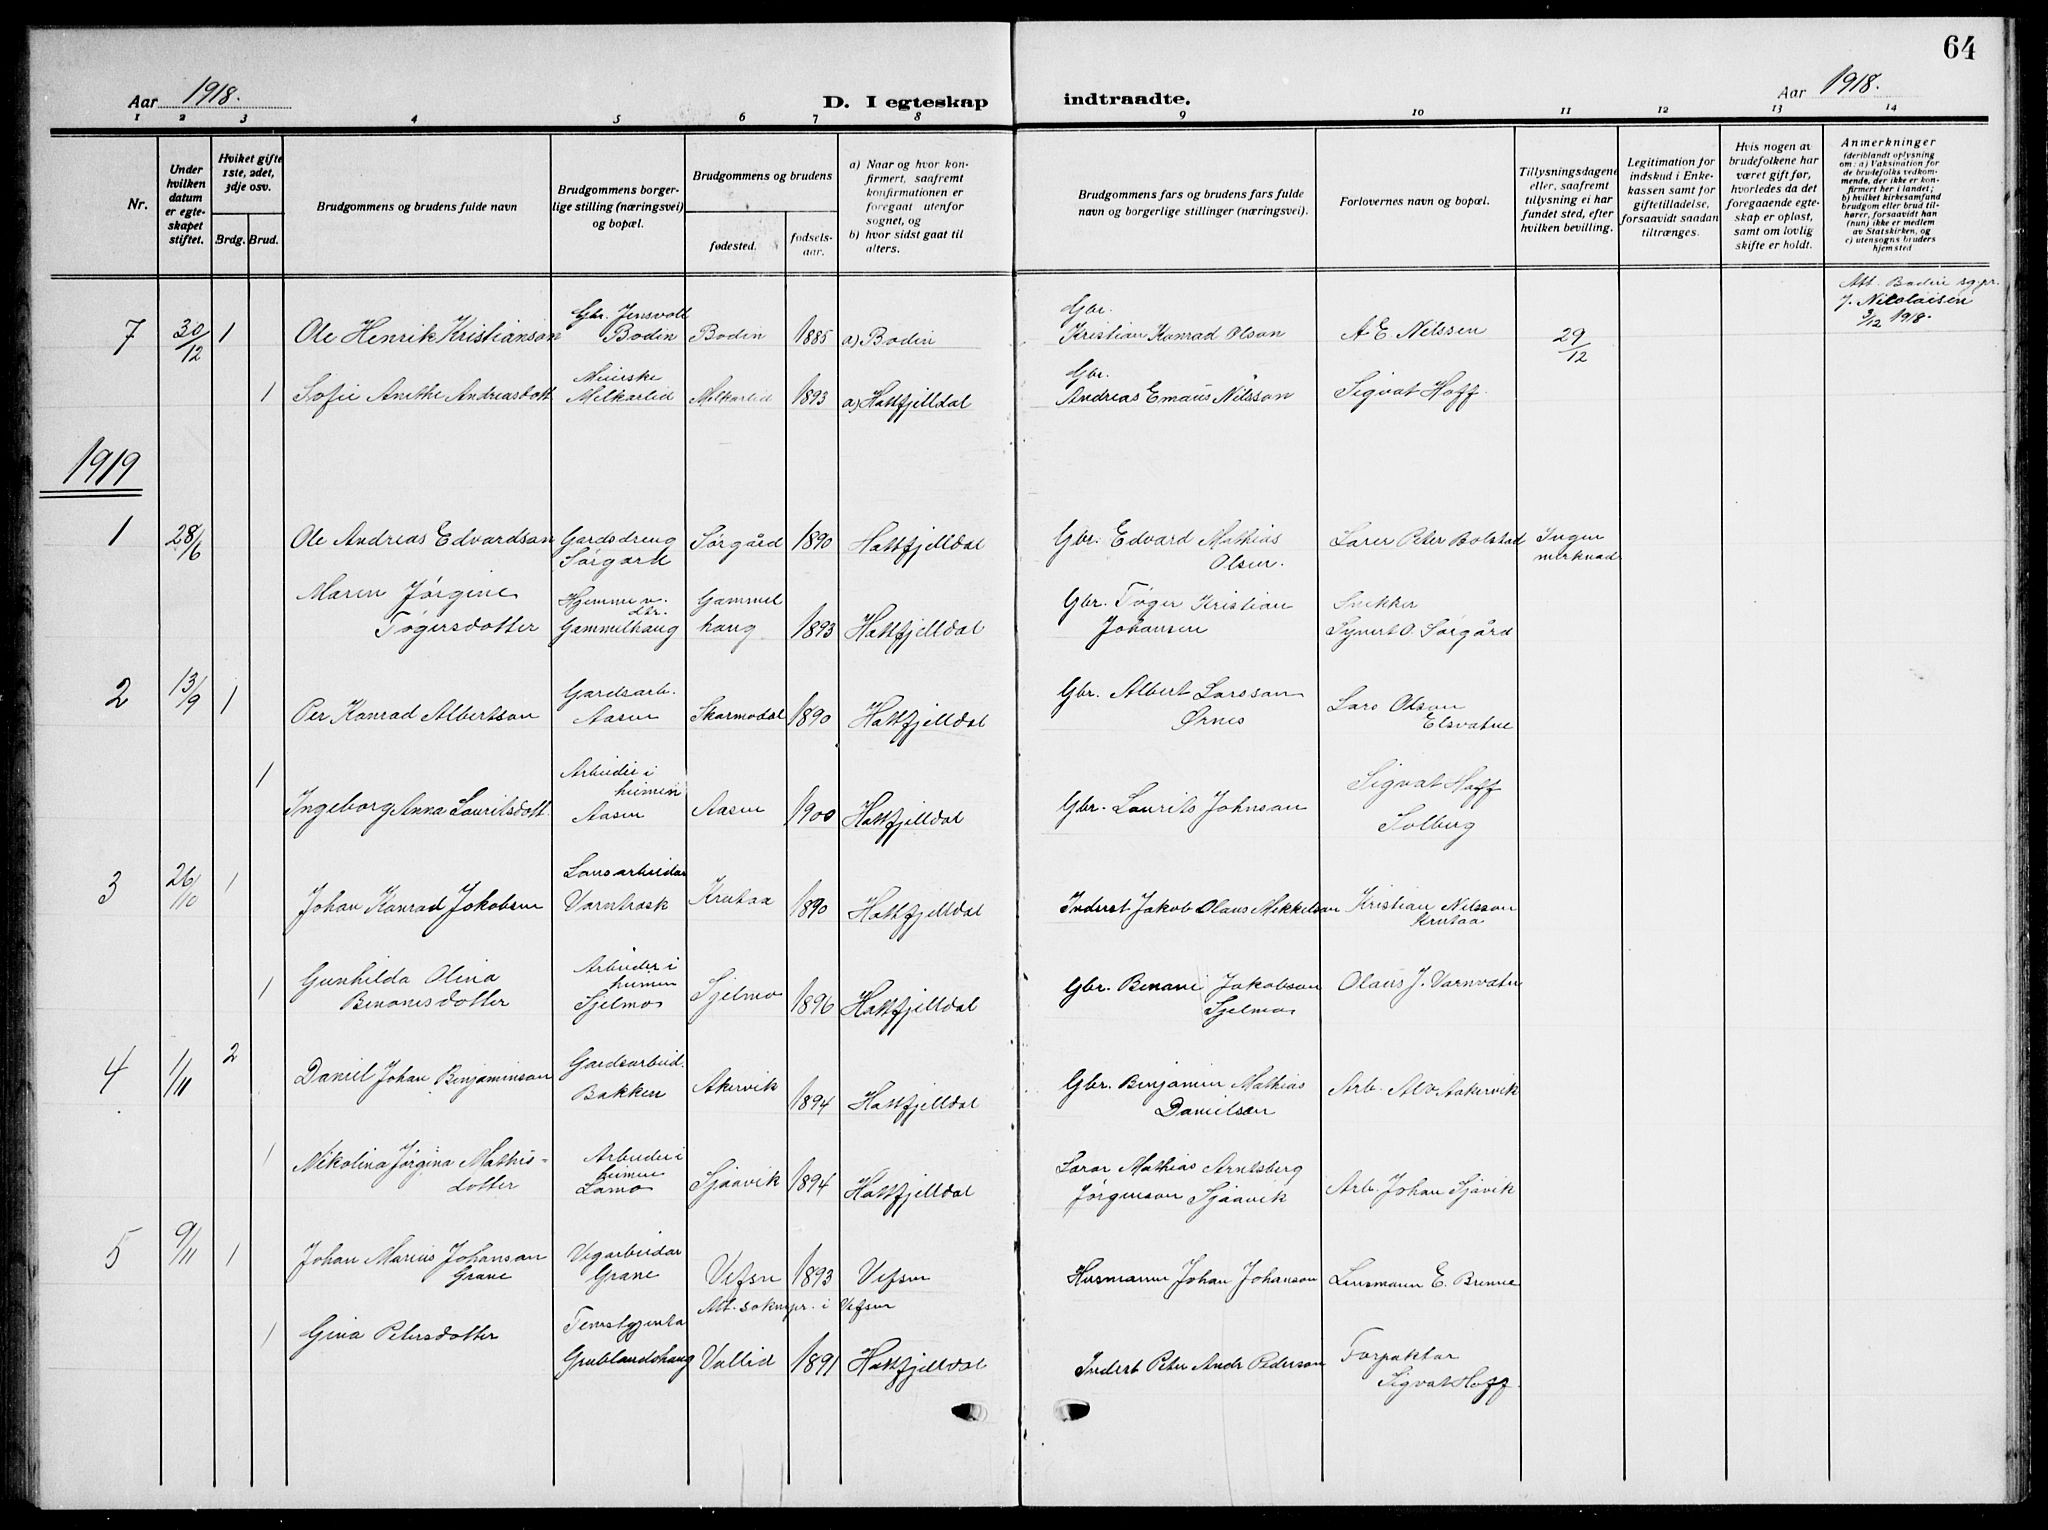 64
Aar 1918.
D. I egteskap
indtraadte.
Aar 1918.
1 2 3 4 5 6 7 8 9 10 11 12 13 14
Nr.
Under hvilken datum er egteskapet stiftet.
Hvilket gifte 1ste, 2det, 3dje osv.
Brdg. Brud.
Brudgommens og brudens fulde navn
Brudgommens borgerlige stilling (næringsvei) og bopæl.
Brudgommens og brudens
fødested.
fødselsaar.
a) Naar og hvor konfirmert, saafremt konfirmationen er foregaat utenfor sognet, og
b) hvor sidst gaat til alters.
Brudgommens fars og brudens fars fulde navn og borgerlige stillinger (næringsvei).
Forlovernes navn og bopæl.
Tillysningsdagene eller, saafremt tillysning ei har fundet sted, efter hvilken bevilling.
Legitimation for indskud i Enkekassen samt for giftetilladelse, forsaavidt saadan tiltrænges.
Hvis nogen av brudefolkene har været gift før, hvorledes da det foregaaende egteskap er opløst, samt om lovlig skifte er holdt.
Anmerkninger
(deriblandt oplysning om: a) Vaksination for de brudefolks vedkommende, der ikke er konfirmert her i landet; b) hvilket kirkesamfund brudgom eller brud tilhører, forsaavidt han (hun) ikke er medlem av Statskirken, og c) utensogns bruders hjemsted
7 30/12 1 Ole Henrik Kristianson Gbr. Jensvoll Bodin Bodin 1885 a) Bodin Gbr. Kristian Konrad Olson A E Nilssen 29/12 Att. Bodin sgpr. J. Nikolaisen 3/12 1918.
1 Sofie Anethe Andreasdott Meierske Melkarlid Melkarlid 1893 a) Hattfjelldal Gbr. Andreas Emaus Nilsson Sigvat Hoff.
1919
1 28/6 Ole Andreas Edvardson Gardsdreng Sørgard Sørgård 1890 Hattfjelldal Gbr. Edvard Mathias Olsen. Lærer Peter Bolstad Ingen merknad
Maren Jørgine Tøgersdotter Hjemmev. dtr. Gammelhaug Gammelhaug 1893 Hattfjelldal Gbr. Tøger Kristian Johansen Snekker Synert O. Sørgård
2 13/9 1 Per Konrad Albertson Gardsarb. Aasen Skarmodal 1890 Hattfjelldal Gbr. Albert Larsson Ørnes Lars Olson Elsvatne
1 Ingeborg Anna Lauritsdott. Arbeider i heimen Aasen Aasen 1900 Hattfjelldal Gbr. Laurits Johnson Sigvat Hoff Solberg
3 26/10 1 Johan Konrad Jokobsen Lausarbeidar Varntræsk Krutaa 1890 Hattfjelldal Inderst Jakob Olaus Mikkelson Kristian Nilsson Krutaa
1 Gunhilda Olina Benonisdotter Arbeider i heimen Sjelmo Sjelmo 1896 Hattfjelldal Gbr. Benoni Jakobson Sjelmo Olaus J. Varnvatn
4 1/11 2 Daniel Johan Benjaminson Gardsarbeid. Bakken Akervik 1894 Hattfjelldal Gbr. Benjamin Mathias Danielsen Arb. Alv Aakervik
1 Nikolina Jørgina Mathisdotter Arbeider i heimen Lamo Sjaavik 1894 Hattfjelldal Lærar Mathias Arntsberg Jørgenson Sjaavik Arb. Johan Sjåvik
5 9/11 1 Johan Marius Johanson Grane Vegarbeidar Grane Vefsn 1893 Vefsn Husmann Johan Johanson Lensmann E. Brenne
Att. soknepr. i Vefsn
1 Gina Petersdotter Tenestgjenta Grublandshaug Vallid 1891 Hattfjelldal Inderst Peter Andr. Pederson Forpaktar Sigvat Hoff.